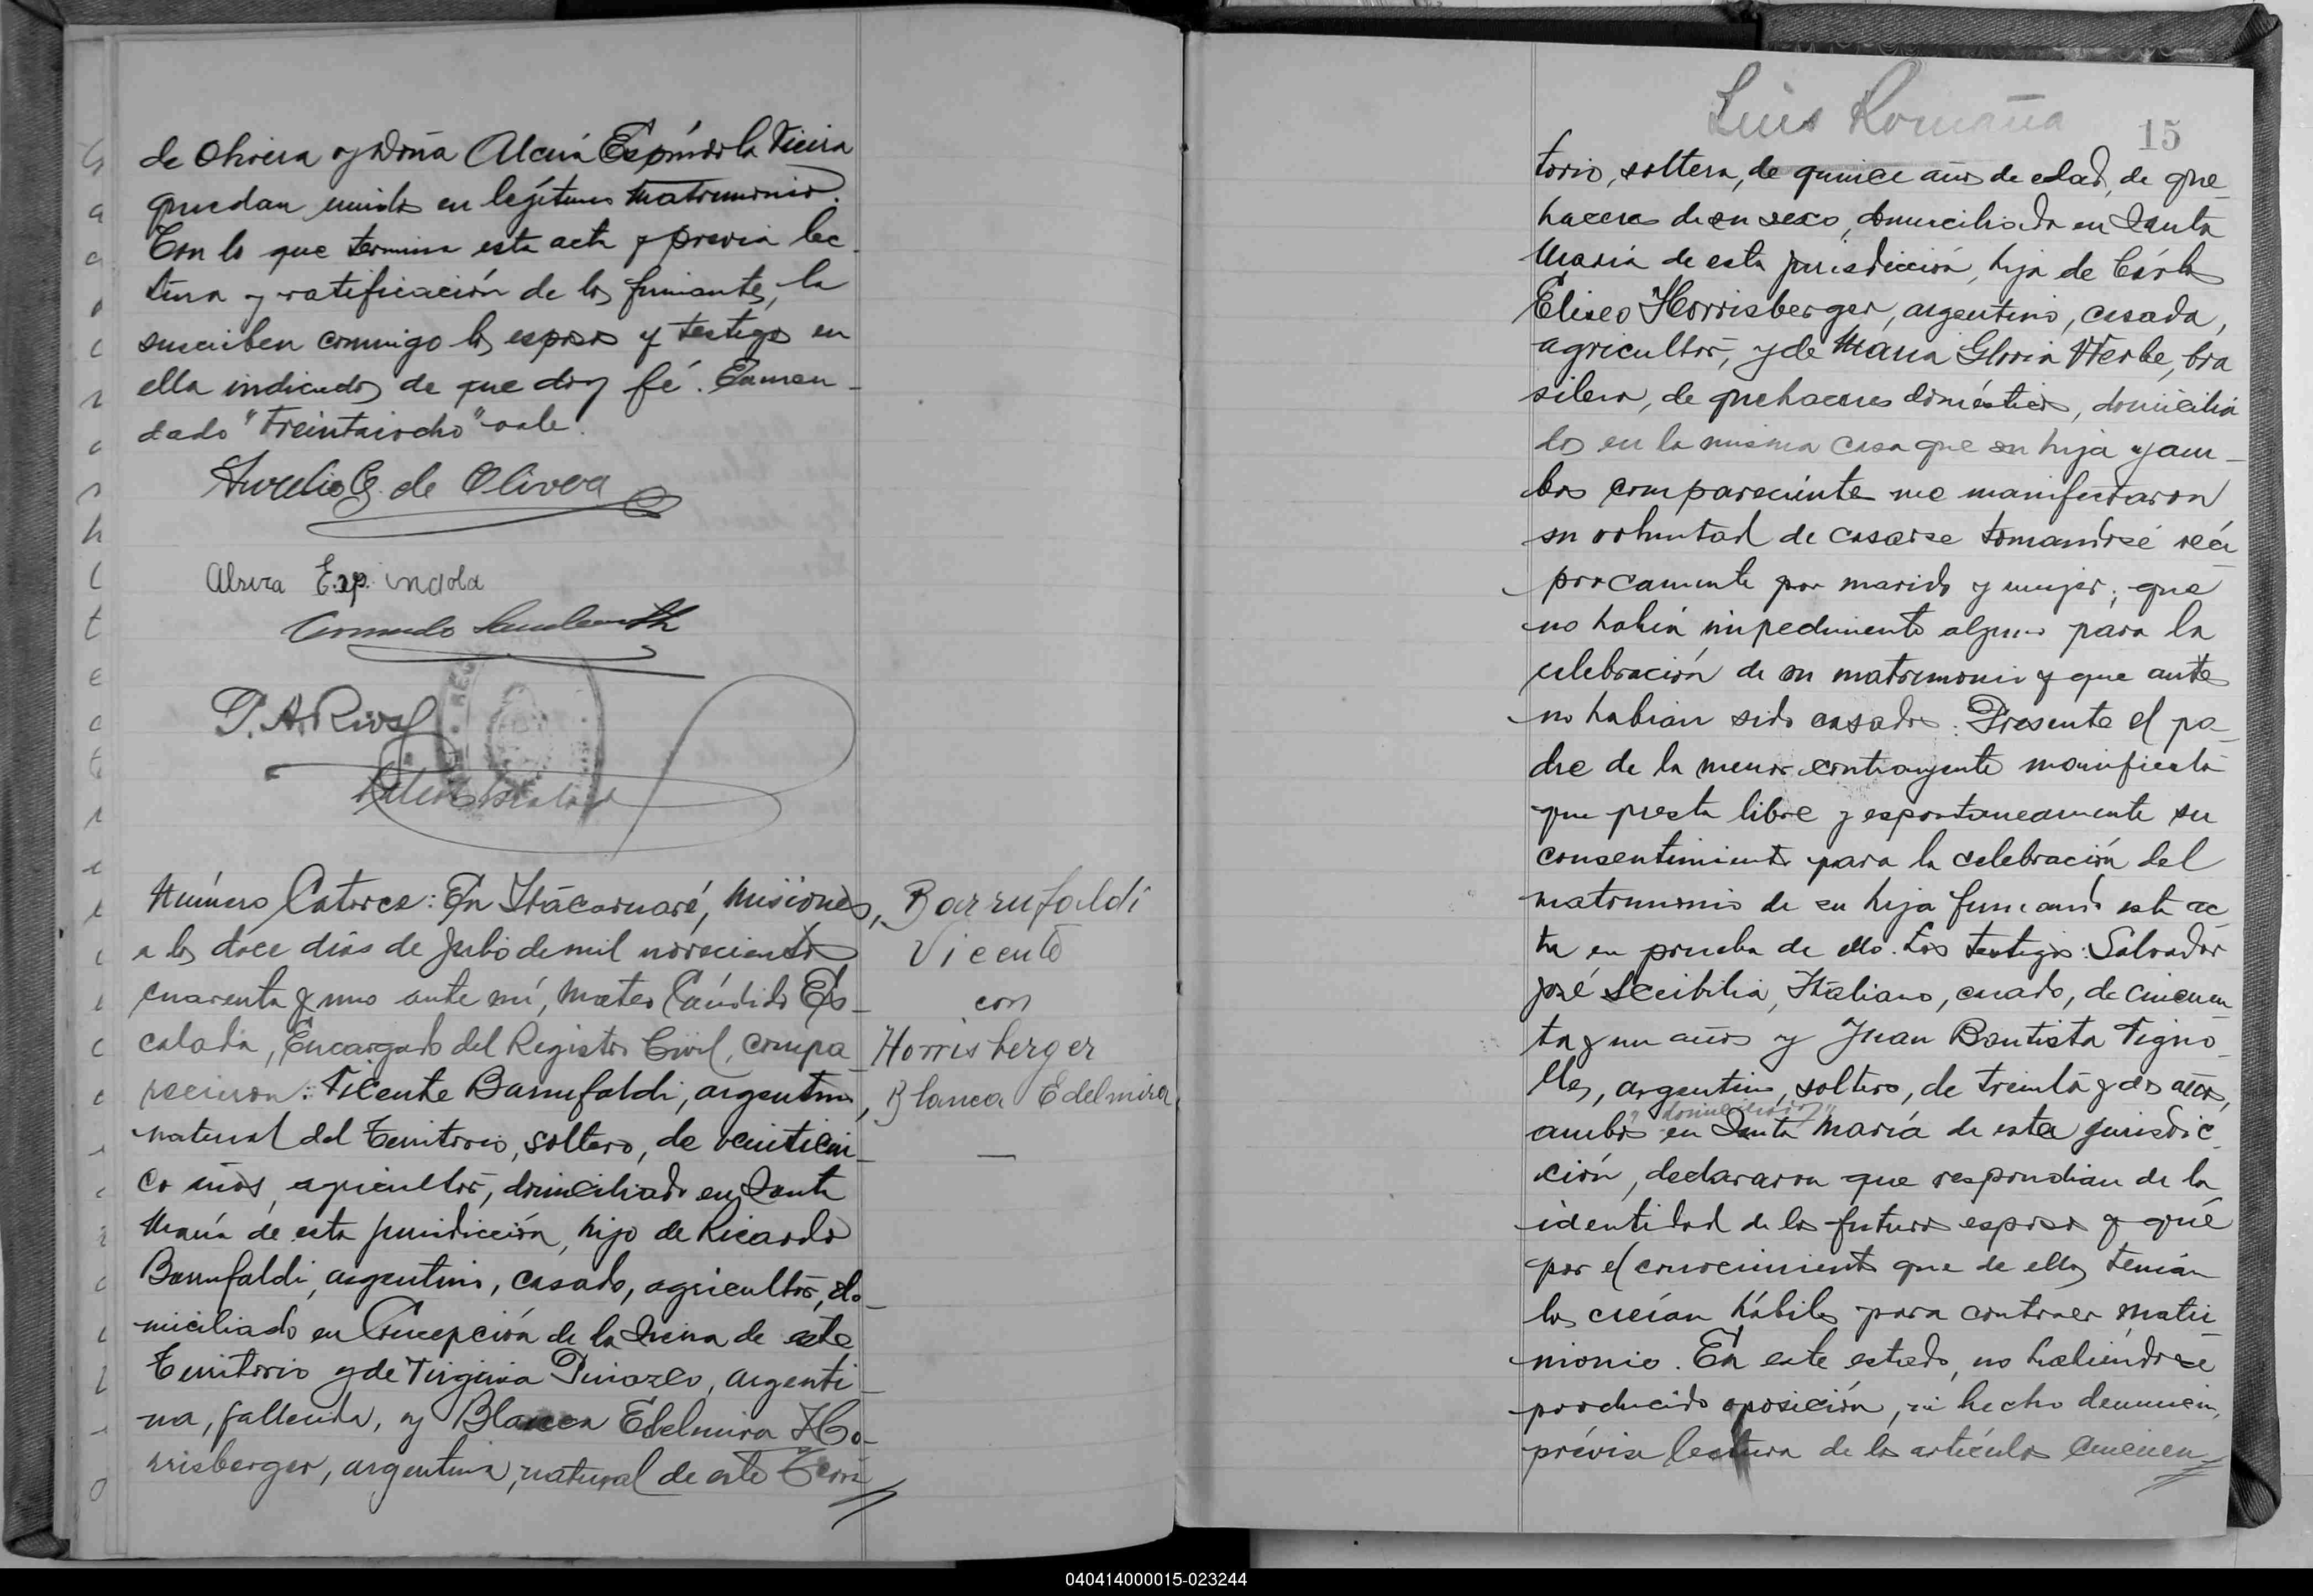 de Oliveira y doña Alcira Espíndola Vieira
quedan unidos en legítimo matrimonio.
Con lo que termina esta acta y previa lec
tura y ratificación de los firmantes, la
suscriben conmigo los esposos y testigos en
ella indicados de que doy fé. Enmen-
dado "Treintaiocho" vale.
Aurelio E. de Olivera
Alsira Espindola
Armando
P. A. Rivas
Número Catorce: En Itacaruaré, Misiones,
a los doce días de Julio de mil novecientos
cuarenta y uno ante mí, Mateo Cándido Es-
calada, Encargado del Registro Civil, compa
recieron: Vicente Barrufaldi, argentino,
natural del Territorio, soltero, de veinticin-
co años, agricultor, domiciliado en Santa
María de esta jurisdicción, hijo de Ricardo
Barrufaldi, argentino, casado, agricultor, do-
miciliado en Concepción de la Sierra de este
Territorio y de Virginia argenti-
na, fallecida, y Blanca Edelmira Ho-
rrisberger, argentina, natural de este Terri
Barrufaldi
Vicente
con
Horrisberger
Blanca Edelmira
Luis Romaña
15
torio, soltera, de quince años de edad, de que
haceres de su sexo, domiciliada en Santa
María de esta jurisdicción, hija de Cárlos
Eliseo Horrisberger, argentino, casado,
agricultor, y de Maria Gloria Werle, bra
silera, de quehaceres domésticos, domicilia
dos en la misma casa que su hija y am-
bos comparecientes me manifestaron
su voluntad de casarse tomandose recí
procamente por marido y mujer; que
no había impedimento alguno para la
celebración de su matrimonio y que antes
no habían sido casados. Presente el pa-
dre de la menor contrayente manifiesta
que presta libre y espontaneamente su
consentimiento para la celebración del
matrimonio de su hija firmando esta ac
ta en prueba de ello. Los testigos: Salvador
José Scibilia, Italiano, casado, de cincuen-
ta y un años y Juan Bautista Vigno-
lles, argentino, soltero, de treinta y dos años,
"domiciliados"
ambos en Santa María de esta jurisdic
ción, declararon que respondían de la
identidad de los futuros esposos y que
por el conocimiento que de ellos tenían
los creían hábiles para contraer matri
monio. En este estado, no habiéndose
producido oposición, ni hecho denuncia,
prévia lectura de los artículos cincuen-
040414000015-023244